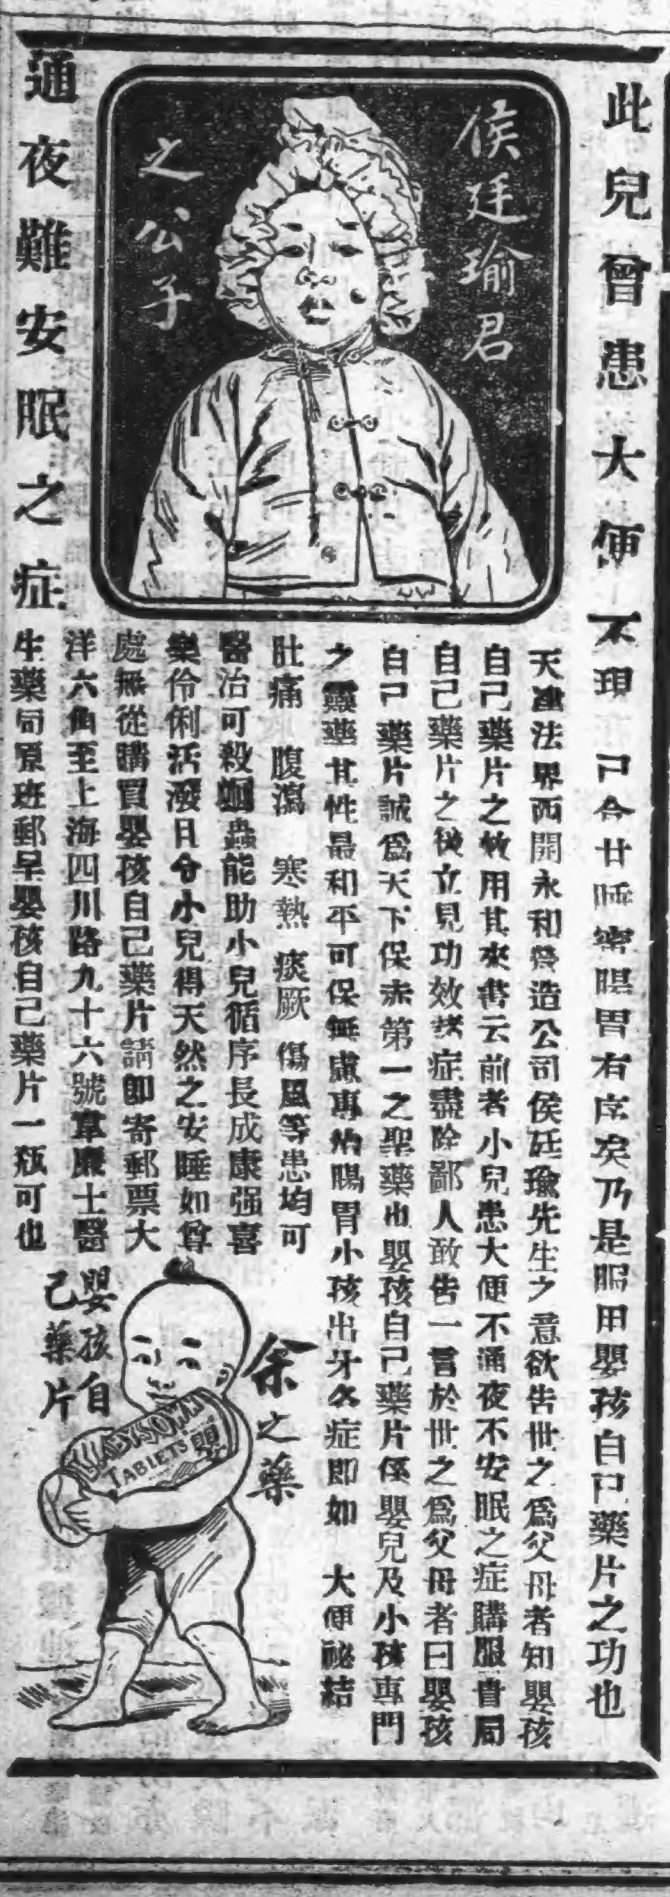 此兒曾患大便不
通夜難安眠之症
現已今甘睡蜜腸胃有序矣乃是服用嬰孩自己藥片之功也
侯廷瑜君
之公子
天津法界西開永和營造公司侯廷瑜先生之意欲告世之爲父母者知嬰孩
自己藥片之效用其來書云前者小兒患大便不通夜不安眠之症購服貴局
自己藥片之後立見功效諸症盡除鄙人敢告一言於世之爲父母者曰嬰孩
自己藥片誠爲天下保赤第一之聖藥也嬰孩自己藥片係嬰兒及小孩專門
之靈藥其性最和平可保無慮專治腸胃小孩出牙各症即如 大便祕結
肚痛 腹瀉 寒熱 痰厥 傷風等患均可
醫治可殺蛔蟲能助小兒循序長成康强喜
樂伶俐活潑日令小兒得天然之安睡如尊
處無從購買嬰孩自己藥片請即寄郵票大
洋六角至上海四川路九十六號韋廉士醫
生藥局原班郵早嬰孩自己藥片一瓶可也
余之藥
嬰孩自
己藥片
BABY'S OWN
TABLETS